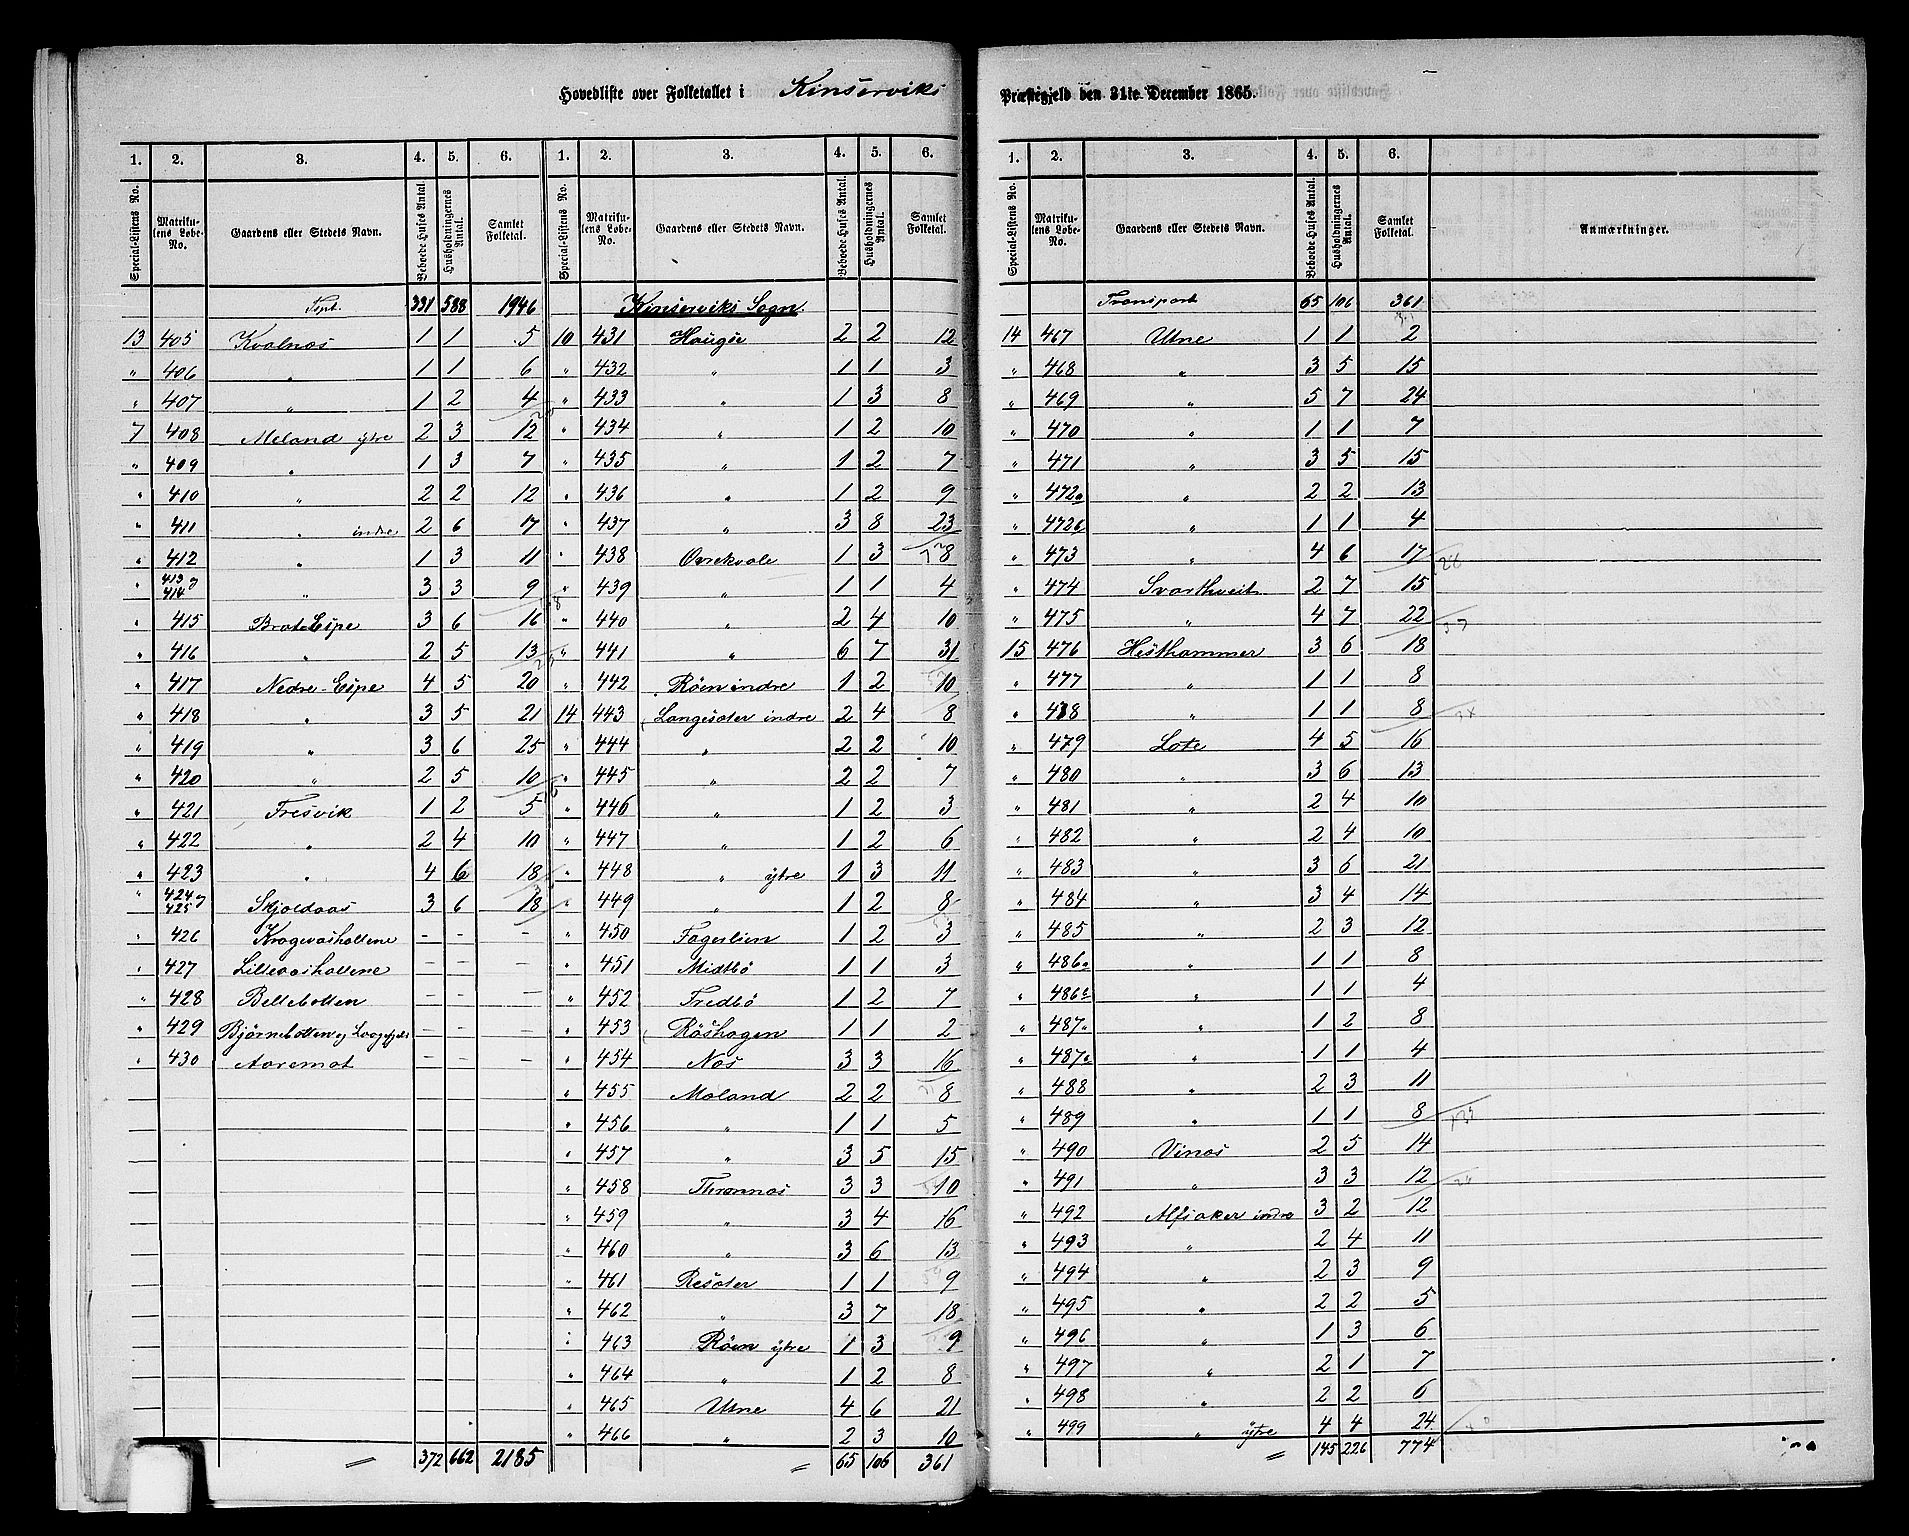 Hovedliste over Folketallet i Kinserviks
1. 2. 3. 4. 5. 6. 1. 2. 3. 4. 5. 6.
Special-Listens No. Matrikulens Løbe-No. Gaardens eller Stedets Navn. Beboede Huses Antal. Husholdningernes Antal. Samlet Folketal. Special-Listens No. Matrikulens Løbe-No. Gaardens eller Stedets Navn. Beboede Huses Antal. Husholdningernes Antal. Samlet Folketal.
Tspt. 331 588 1946 Kinserviks Sogn.
13 405 Kvalnæs 1 1 5 10 431 Hauge 2 2 12
" 406 " 1 1 6 " 432 " 1 1 3
" 407 " 1 2 4 " 433 " 1 3 8
7 408 Meland ytre 2 3 12 " 434 " 1 2 10
" 409 " 1 3 7 " 435 " 1 2 7
" 410 " 2 2 12 " 436 " 1 2 9
" 411 " indre 2 6 17 " 437 " 3 8 23
" 412 " 1 3 11 " 438 Ovrekvale 1 3 8
" 413 og 414 " 3 3 9 " 439 " 1 1 4
" 415 Brat Espe 3 6 16 " 440 " 2 4 10
" 416 " 2 5 13 " 441 " 6 7 31
" 417 Nedre-Espe 4 5 20 " 442 Røen indre 1 2 10
" 418 " 3 5 21 14 443 Langesæter indre 2 4 8
" 419 " 3 6 25 " 444 " 2 2 10
" 420 " 2 5 10 " 445 " 2 2 7
" 421 Fresvik 1 2 5 " 446 " 1 2 3
" 422 " 2 4 10 " 447 " 1 2 6
" 423 " 4 6 18 " 448 " ytre 1 3 11
" 424 og 425 Skjoldaas 3 6 18 " 449 " 1 2 8
" 426 Kragevashallene - - - " 450 Fagerlien 1 2 3
" 427 Lillevashallene - - - " 451 Midtbø 1 1 3
" 428 Bellebotten - - - " 452 Tredbø 1 2 7
" 429 Bjørnebotten og - - - " 453 Røshagen 1 1 2
" 430 Aaremot - - - " 454 Næs 3 3 16
" 455 Maland 2 2 8
" 456 " 1 1 5
" 457 " 3 5 15
" 458 Thrones 3 3 10
" 459 " 3 4 16
" 460 " 3 6 13
" 461 Resæter 1 1 9
" 462 " 3 7 18
" 463 Røen ytre 1 3 9
" 464 " 1 2 8
" 465 Utne 4 6 21
" 466 " 2 3 10
= 372 662 2185 = 65 106 361
Præstegjeld den 31te December 1865.
1. 2. 3. 4. 5. 6.
Special-Listens No. Matrikulens Løbe-No. Gaardens eller Stedets Navn. Beboede Huses Antal. Husholdningernes Antal. Samlet Folketal. Anmærkninger.
Transport 65 106 361
14 467 Utne 1 1 2
" 468 " 3 5 15
" 469 " 5 7 24
" 470 " 1 1 7
" 471 " 3 5 15
" 472a " 2 2 13
" 472b " 1 1 4
" 473 " 4 6 17
" 474 Svarthveit 2 7 15
" 475 " 4 7 22
15 476 Hesthammer 3 6 18
" 477 " 1 1 8
" 478 " 1 1 8
" 479 Lote 4 5 16
" 480 " 3 6 13
" 481 " 2 4 10
" 482 " 2 4 10
" 483 " 3 6 21
" 484 " 3 4 14
" 485 " 2 3 12
" 486a " 1 1 8
" 486b " 1 1 4
" 487a " 1 2 8
" 487b " 1 1 4
" 488 " 2 3 11
" 489 " 1 1 8
" 490 Vinæs 2 5 14
" 491 " 3 3 12
" 492 Alfsaker indre 3 2 12
" 493 " 2 4 11
" 494 " 2 3 9
" 495 " 2 2 5
" 496 " 1 3 6
" 497 " 2 1 7
" 498 " 2 2 6
" 499 " ytre 4 4 24
= 145 226 774